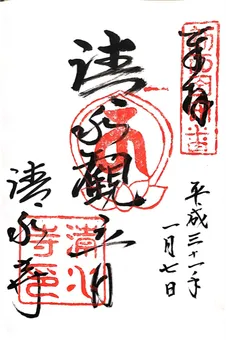 奉拝
平成三十一年
一月七日
清水觀音
清水寺
清水寺印